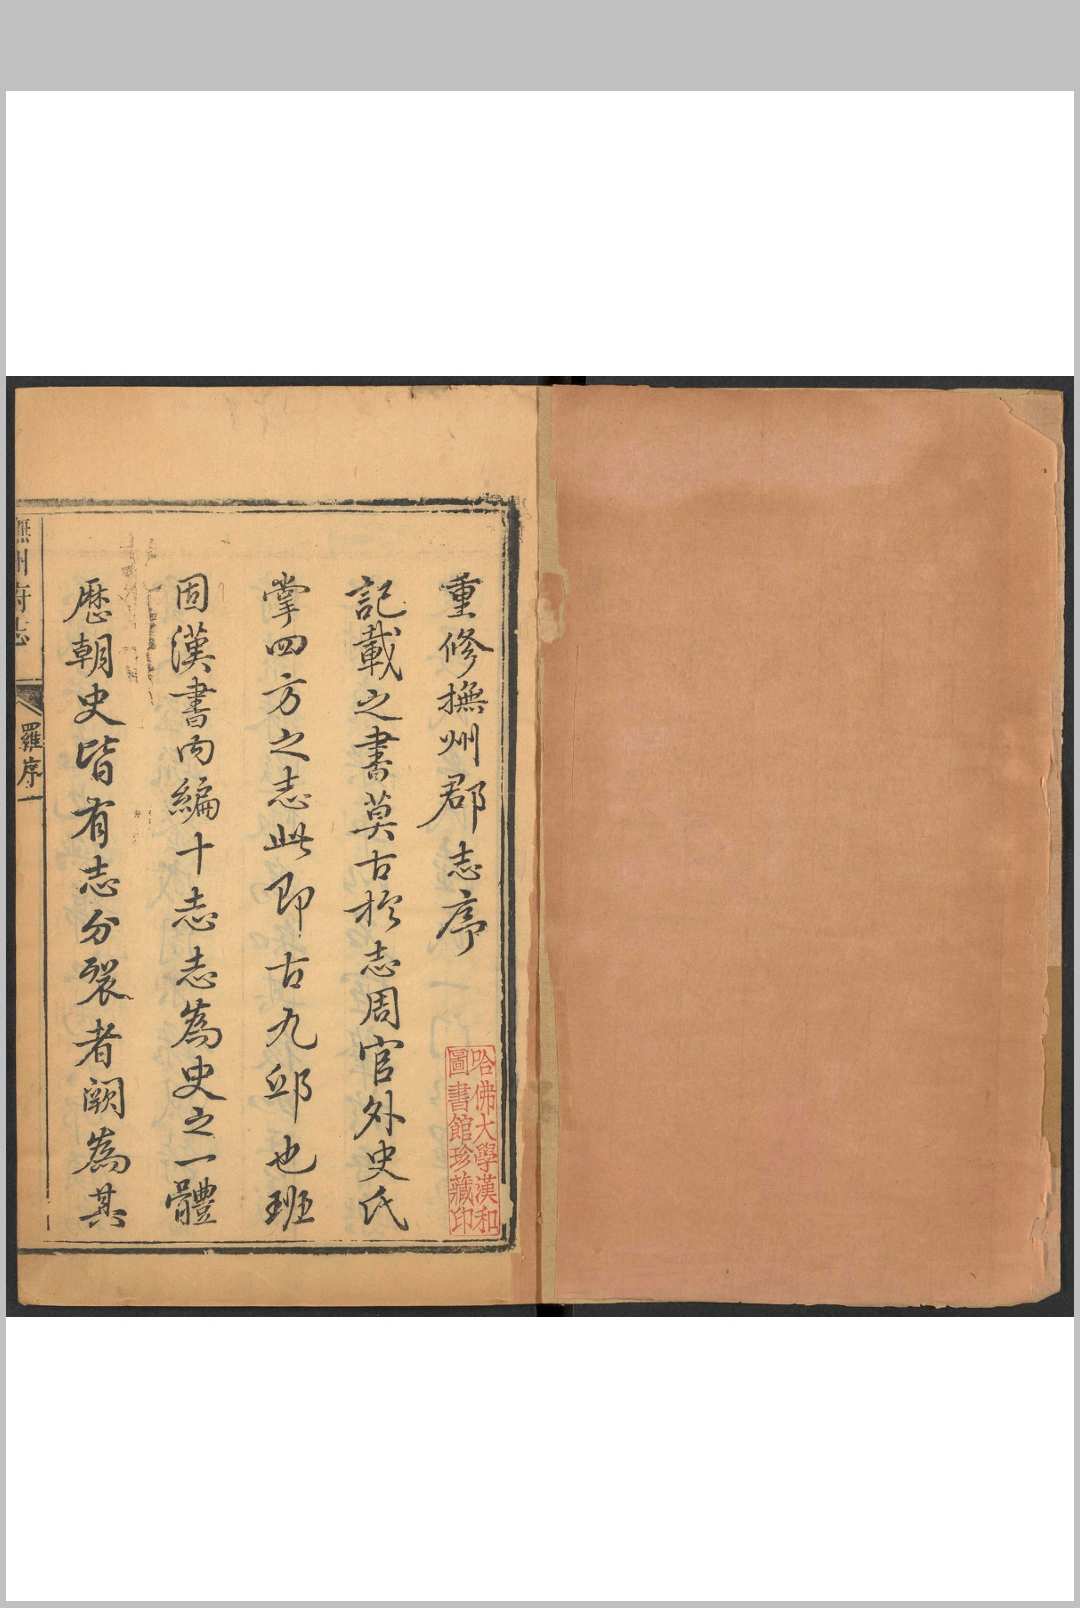 重修撫州郡志序
記載之書莫古於志周官外史氏
掌四方之志此即古九邱也班
固漢書內編十志志為史之一體
歷朝史皆有志分裂者闕為其
撫州府志
羅序
一
哈佛大學漢和
圖書館珍藏印